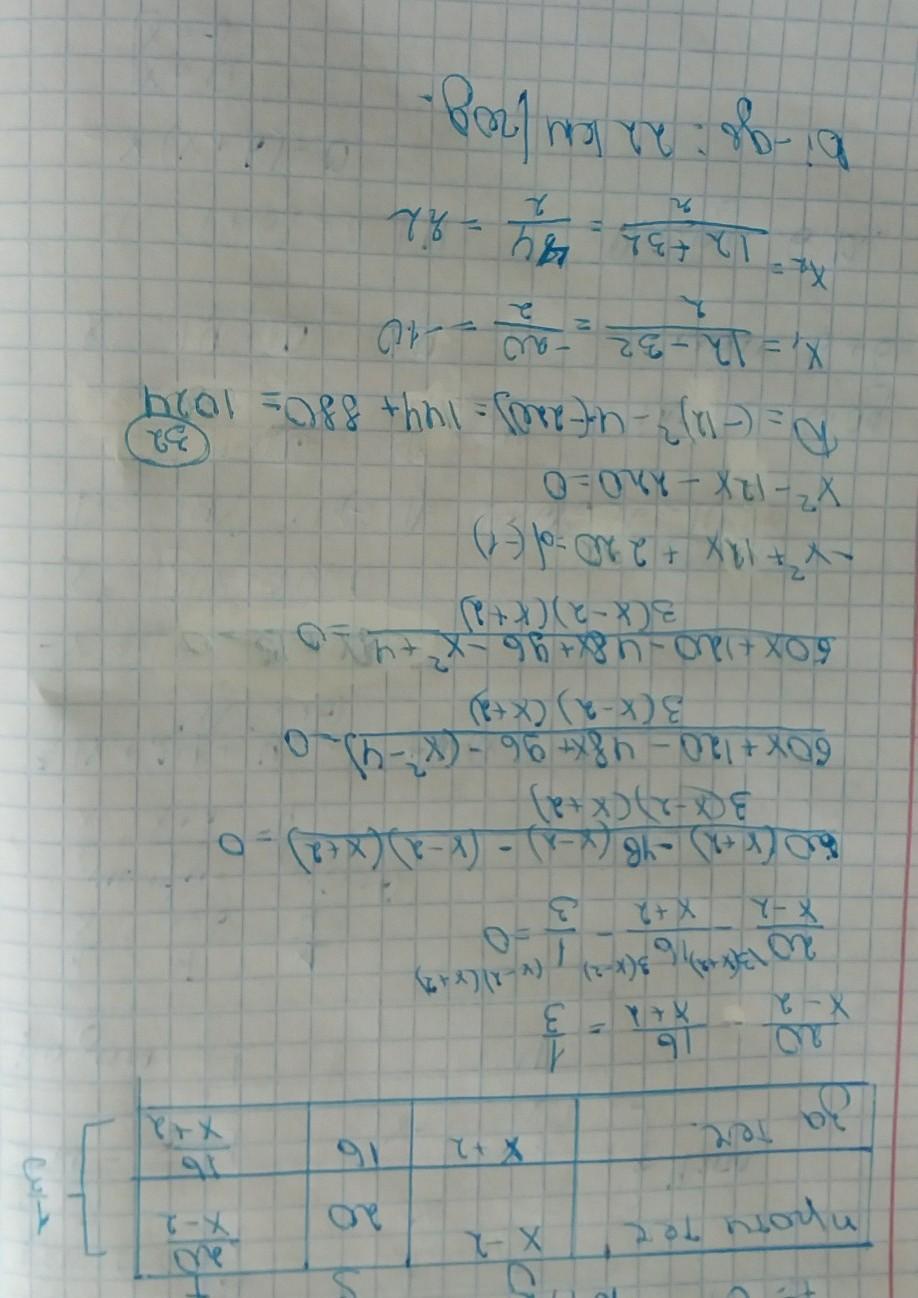 v s t
проти теч. x-2 20 20/(x-2)
За теч. x+2 16 16/(x+2)
20/(x-2) - 16/(x+2) = 1/3
20/(x-2) - 16/(x+2) - 1/3 = 0
60(x+2) - 48(x-2) - (x-2)(x+2) / 3(x-2)(x+2) = 0
60x+120 - 48x+96 - (x²-4) / 3(x-2)(x+2) = 0
60x+120 - 48x+96 - x²+4 / 3(x-2)(x+2) = 0
-x²+12x+220=0 | (-1)
x²-12x-220=0
D=(-12)²-4(-220)=144+880=1024
32
x₁ = (12-32)/2 = -20/2 = -10
x₂ = (12+32)/2 = 44/2 = 22
Ві-дь: 22 км/год.